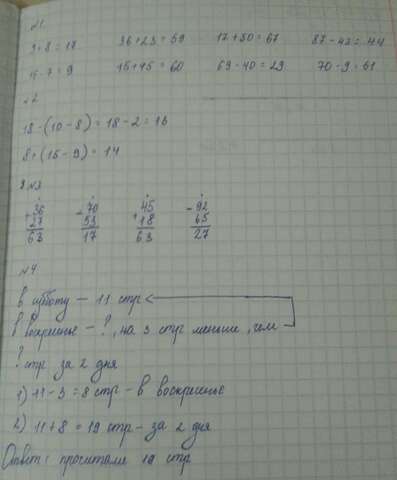 №1
9+8=17 36+23=59 17+50=67 87-43=44
16-7=9 15+45=60 69-40=29 70-9=61
№2
18-(10-8)=18-2=16
8+(15-9)=14
№3
+36 -70 +45 -92
27 53 18 65
63 17 63 27
№4
В субботу – 11 стр
В воскресенье – ?, на 3 стр меньше, чем
? стр за 2 дня
1) 11-3=8 стр – в воскресенье
2) 11+8=19 стр – за 2 дня
Ответ: прочитали 19 стр